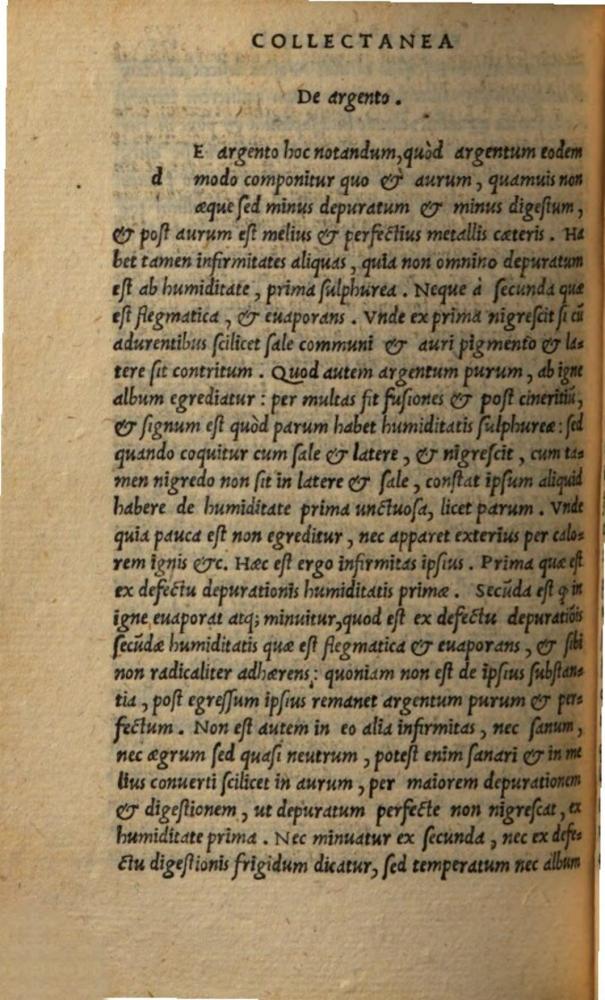 COLLECTANEA
De argento.
E argento hoc notandum, quòd argentum eodem
d modo componitur quo & aurum, quamuis non
æque sed minus depuratum & minus digestum,
& post aurum est melius & perfectius metallis cæteris. Ha
bet tamen infirmitates aliquas, quia non omnino depuratum
est ab humiditate, prima sulphurea. Neque à secunda quæ
est flegmatica, & euaporans. Vnde ex prima nigrescit si cũ
adurentibus scilicet sale communi & auri pigmento & la=
tere sit contritum. Quod autem argentum purum, ab igne
album egrediatur: per multas fit fusiones & post cineritiũ,
& signum est quòd parum habet humiditatis sulphureæ: sed
quando coquitur cum sale & latere, & nigrescit, cum ta=
men nigredo non sit in latere & sale, constat ipsum aliquid
habere de humiditate prima unctuosa, licet parum. Vnde
quia pauca est non egreditur, nec apparet exterius per calo=
rem ignis &c. Hæc est ergo infirmitas ipsius. Prima quæ est
ex defectu depurationis humiditatis primæ. Secũda est ꝙ in
igne euaporat atq; minuitur, quod est ex defectu depuratiõis
secũdæ humiditatis quæ est flegmatica & euaporans, & sibi
non radicaliter adhærens: quoniam non est de ipsius substan=
tia, post egressum ipsius remanet argentum purum & per=
fectum. Non est autem in eo alia infirmitas, nec sanum,
nec ægrum sed quasi neutrum, potest enim sanari & in me
lius conuerti scilicet in aurum, per maiorem depurationem
& digestionem, ut depuratum perfecte non nigrescat, ex
humiditate prima. Nec minuatur ex secunda, nec ex defe=
ctu digestionis frigidum dicatur, sed temperatum nec album